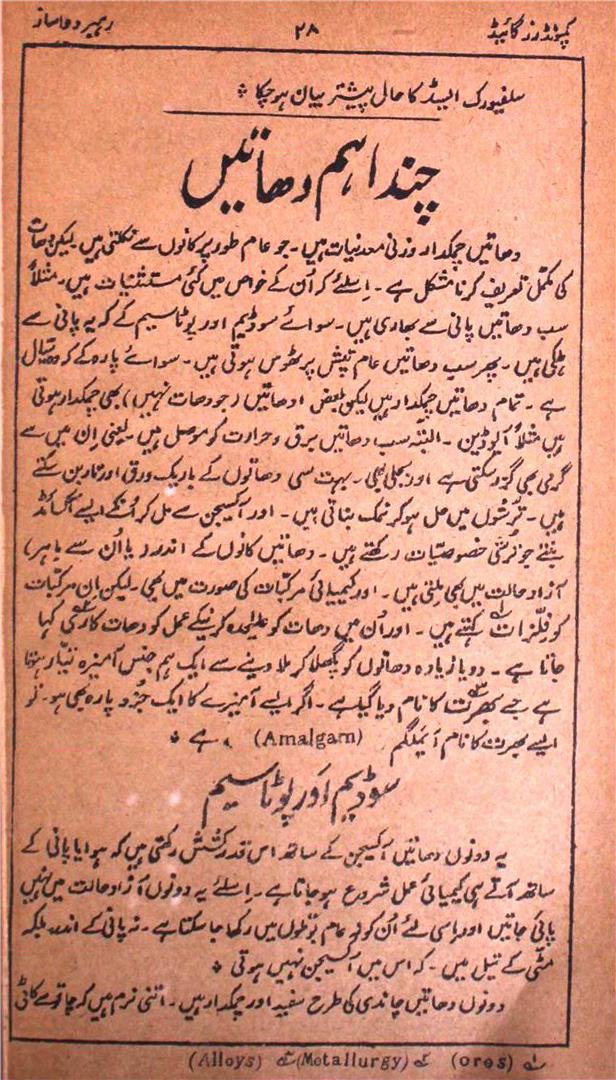 کمپونڈرز گائیڈ ۲۸ رہبر دواساز
سلفیورک ایسڈ کا حال پیشتر بیان ہو چکا ٭
چند اہم دھاتیں
دھاتیں چمکدار وزنی معدنیات ہیں۔ جو عام طور پر کانوں سے نکلتی ہیں۔ لیکن دھات
کی مکمل تعریف کرنا مشکل ہے۔ اِسلئے کہ اُن کے خواص میں کئی مستثنیات ہیں۔ مثلاً
سب دھاتیں پانی سے بھاری ہیں۔ سوائے سوڈیم اور پوٹاسیم کے کہ یہ پانی سے
ہلکی ہیں۔ پھر سب دھاتیں عام تپش پر ٹھوس ہوتی ہیں۔ سوائے پارہ کے کہ وہ سیال
ہے۔ تمام دھاتیں چمکدار ہیں لیکن بعض ادھاتیں (جو دھات نہیں) بھی چمکدار ہوتی
ہیں مثلاً آیوڈین۔ البتہ سب دھاتیں برق و حرارت کو موصل ہیں۔ یعنی اِن میں سے
گرمی بھی گزر سکتی ہے اور بجلی بھی۔ بہت سی دھاتوں کے باریک ورق اور تار بن سکتے
ہیں۔ تُرشوں میں حل ہو کر نمک بناتی ہیں۔ اور آکسیجن سے مل کر اُنکے ایسے آکسائڈ
بنتے جو تُرشئی خصوصیات رکھتے ہیں۔ دھاتیں کانوں کے اندر (یا اُن سے باہر)
آزاد حالت میں بھی ملتی ہیں۔ اور کیمیائی مرکبات کی صورت میں بھی۔ لیکن اِن مرکبات
کو فلزات ۱؎ کہتے ہیں۔ اور اُن میں دھات کو علیٰحدہ کرنیکے عمل کو دھات کاری ۲؎ کہا
جاتا ہے۔ دو یا زیادہ دھاتوں کو پگھلا کر ملا دینے سے ایک ہم جنس آمیزہ تیار ہوتا
ہے جسے بھرت ۳؎ کا نام دیا گیا ہے۔ اگر ایسے آمیزے کا ایک جُزو پارہ بھی ہو۔ تو
ایسے بھرت کا نام آیملگم (Amalgam) ہے ٭
سوڈیم اور پوٹاسیم
یہ دونوں دھاتیں آکسیجن کے ساتھ اس قدر کشش رکھتی ہیں کہ ہوا یا پانی کے
ساتھ آتے ہی کیمیائی عمل شروع ہو جاتا ہے۔ اِسلئے یہ دونوں آزاد حالت میں نہیں
پائی جاتیں اور اِسی لئے اُن کو نہ عام بوتلوں میں رکھا جا سکتا ہے۔ نہ پانی کے اندر بلکہ
مٹی کے تیل میں۔ کہ اس میں آکسیجن نہیں ہوتی ٭
دونوں دھاتیں چاندی کی طرح سفید اور چمکدار ہیں۔ اتنی نرم ہیں کہ چاقو سے کاٹی
۱؎ (ores) ۲؎ (Metallurgy) ۳؎ (Alloys)